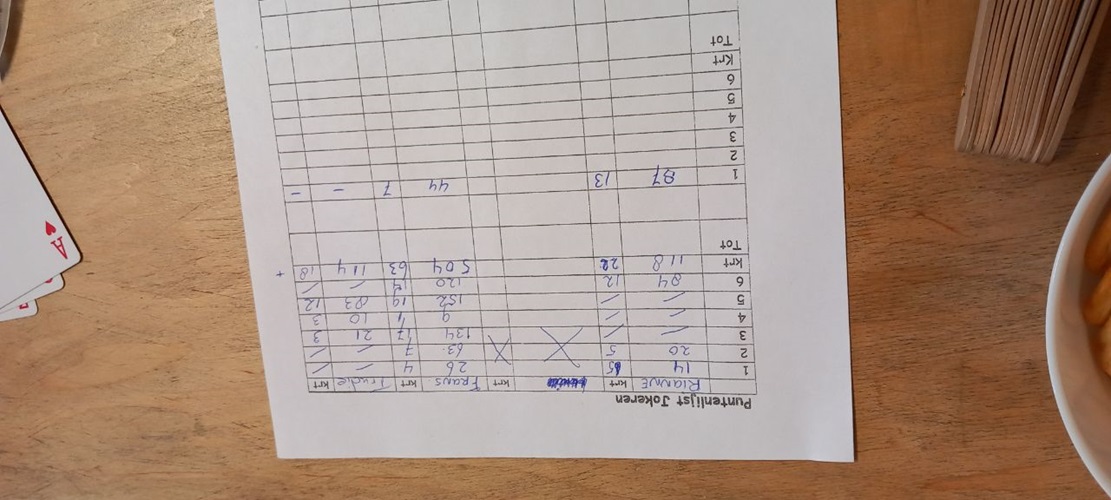 Puntenlijst Jokeren
RIANNE krt krt Frans krt krt
1 14 5 26 4 / /
2 20 5 63 7 / /
3 / / 134 17 21 3
4 / / 9 10 3
5 / / 152 19 83 12
6 84 12 120 14 / /
krt 118 22 504 63 114 18 +
Tot
1 87 13 44 7 - -
2
3
4
5
6
Krt
Tot
A